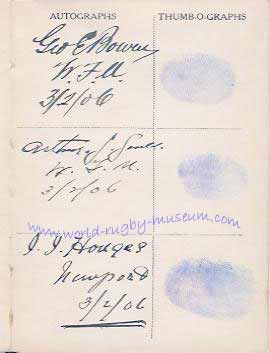 AUTOGRAPHS THUMB-O-GRAPHS
Geo E Bowen
W.F.U.
3/2/06
Arthur J. Gould
W. F. U.
3/2/06
www.world-rugby-museum.com
J. J. Hodges
Newport
3/2/06